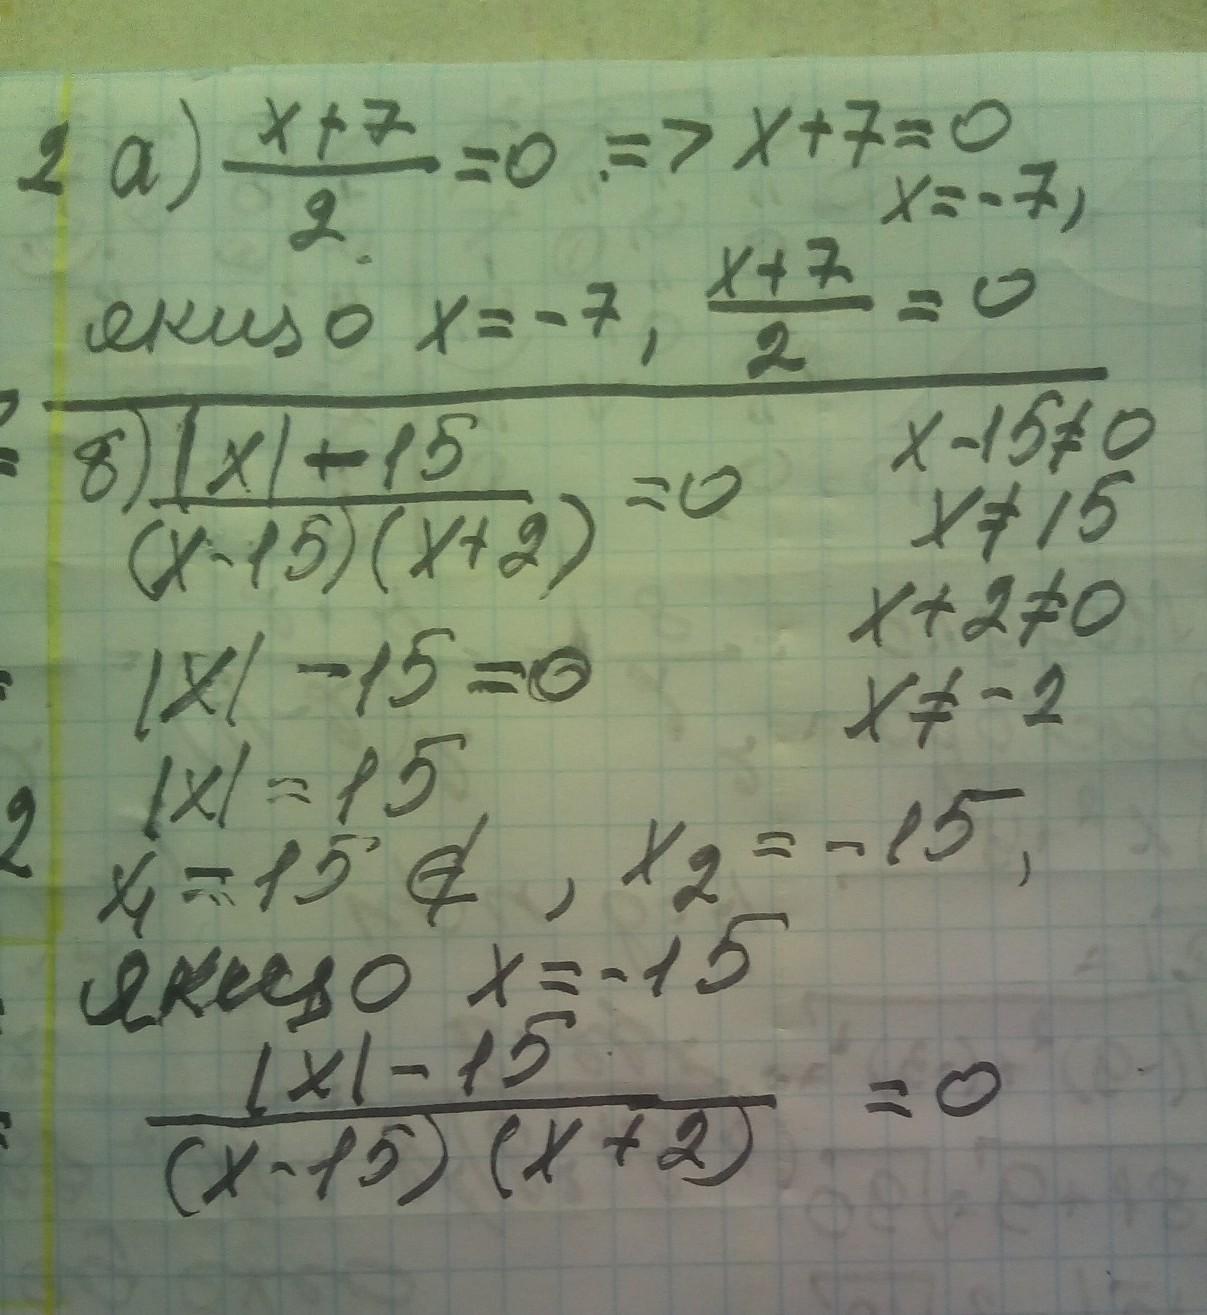 2 а) x+7/2 =0 => x+7=0
x=-7,
якщо x=-7, x+7/2 = 0
б) |x|-15/(x-15)(x+2) =0
x-15≠0
x≠15
x+2≠0
x≠-2
|x| -15=0
|x|=15
x₁=15 ∉, x₂=-15,
якщо x=-15
|x|-15/(x-15)(x+2) =0